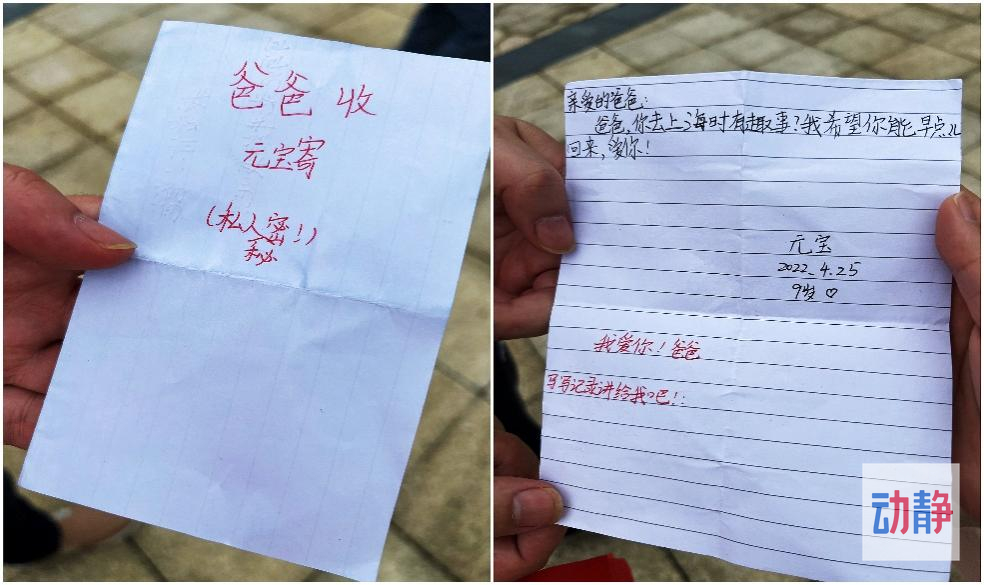 爸爸 收
元宝寄
(私人密!)
秘
亲爱的爸爸:
爸爸,你去上海时有趣事?我希望你能早点儿
回来,爱你!
元宝
2022.4.25
9岁♡
我爱你!爸爸
写写记录讲给我吧!
动静